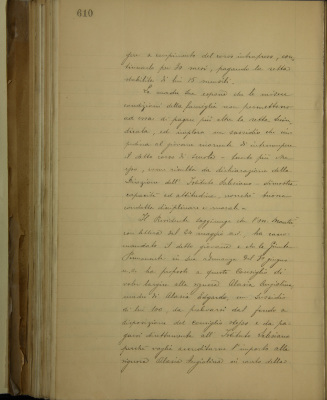 610
que a compimento del corso intrapreso, con-
tinuarlo per 20 mesi, pagando la retta
stabilita di lire 15 mensili.
La madre ha esposto che le misere
condizioni della famiglia non permettono
ad essa di pagare più oltre la retta
ed implora un sussidio che im-
pedisca al giovane di interrompere
il detto corso di - tanto più che
egli, come risulta da dichiarazione della
Direzione dell' Istituto Salesiano dimostra
capacità ed attitudine, nonchè buona
condotta disciplinare e morale.
Il Presidente soggiunge che l'on.
con lettera del 24 maggio ha racco-
mandato il detto giovane e che la Giunta
Provinciale in sua adunanza del 20 giugno
ha proposto a questo Consiglio di
voler largire alla signora Angiolina,
madre di Edgardo, un sussidio
di lire 100, da prelevarsi dal fondo a
disposizione del Consiglio stesso e da pa-
garsi direttamente all' Istituto Salesiano
perchè voglia accreditarne l'importo alla
signora Angiolina in conto della